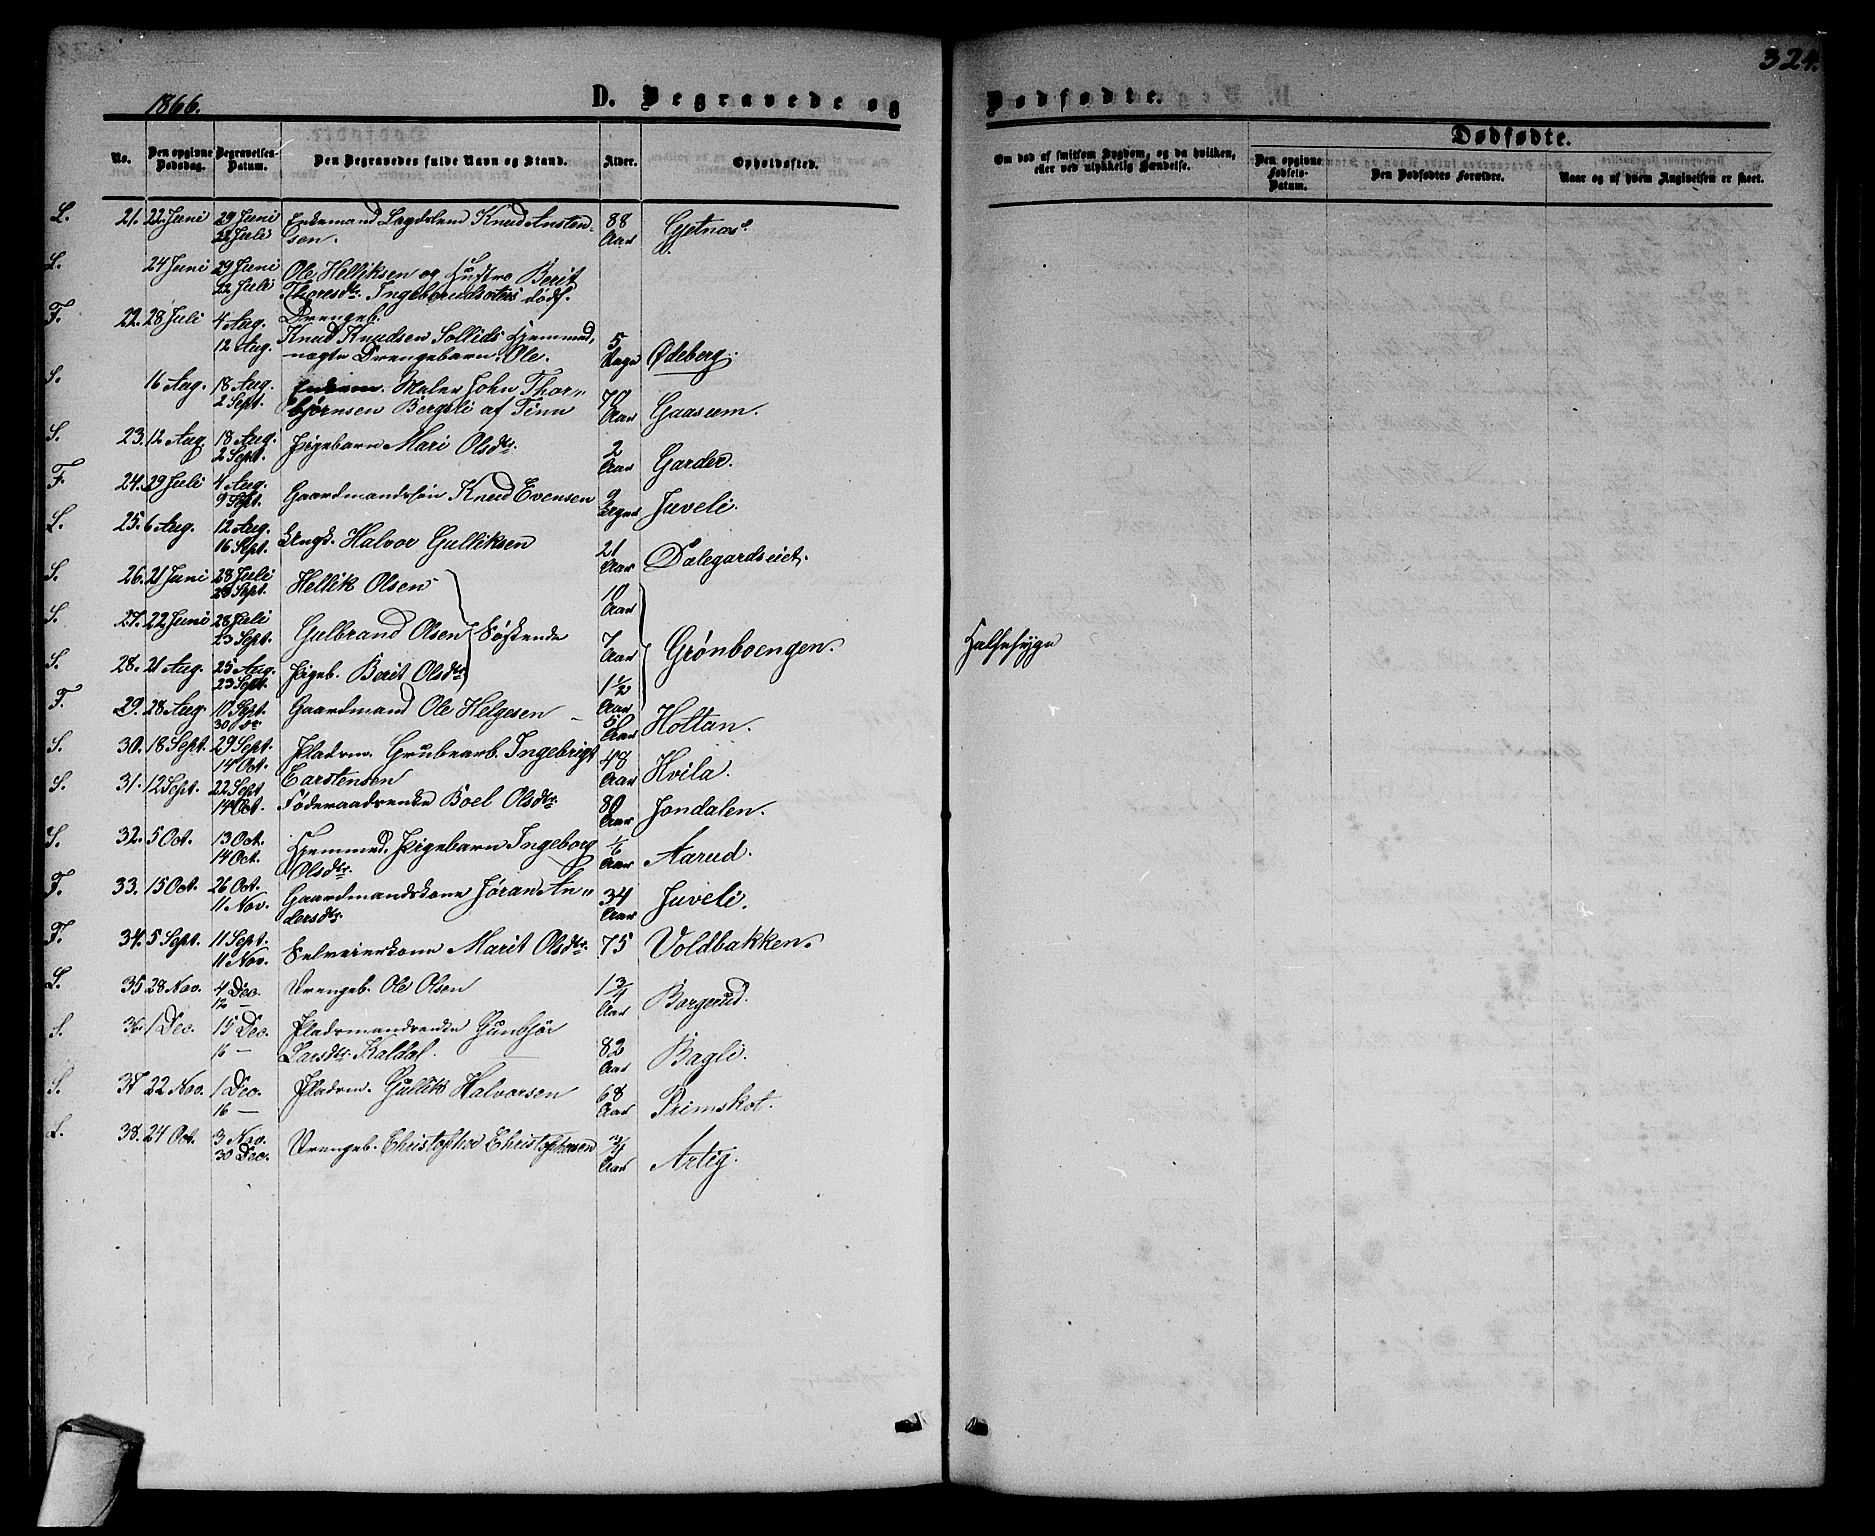 324.
1866.
D. Begravede og Dødfødte.
No. Den opgivne Dødsdag. Begravelses-Datum. Den Begravedes fulde Navn og Stand. Alder. Opholdssted. Om død af smitsom Sygdom, og da hvilken, eller ved ulykkelig Hændelse. Dødfødte. Den opgivne Fødsels-Datum. Den Dødfødtes Forældre. Naar og af hvem Angivelsen er skeet.
L. 21. 22 Juni 29 Juni Enkemand Legdslem Knud Ansten- 88
22 Juli sen. Aar Gjetnæs.
L. 24 Juni 29 Juni Ole Helliksen og Hustro Berit
22 Juli Thoresdtr. Ingeborudsætres dødf.
Drengeb.
F. 22. 28 Juli 4 Aug. Knud Knudsen Sollids hjemmed. 5
12 Aug. Drengebarn Ole. Dage Ødeberg.
S. 16 Aug. 18 Aug. Maler John Thor- 70
2 Sept. bjørnsen Bergsli af Tinn Aar Gaasum.
S. 23. 12 Aug. 18 Aug. Pigebarn Mari Olsdtr. 2
2 Sept. Aar Garder.
F. 24. 29 Juli 4 Aug. Gaardmandssøn Knud Evensen 9
9 Sept. Juveli.
L. 25. 6 Aug. 12 Aug. Ungk. Halvor Gulliksen 21
16 Sept. Aar Dalegardseiet.
S. 26. 21 Juni 28 Juli Hellik Olsen 10
23 Sept. Aar
S. 27. 22 Juni 28 Juli Gulbrand Olsen Søskende 7 Grønboengen. Halsesyge
23 Sept. Aar
S. 28. 21 Aug. 25 Aug. Pigeb. Berit Olsdtr. 1 1/2
23 Sept. Aar
F. 29. 28 Aug. 10 Sept. Gaardmand Ole Helgesen 50 Holtan.
30 Aar
S. 30. 18 Sept. 29 Sept. Pladsm. Grubearb. Ingebrigt 48
14 Oct. Carstensen Aar Hvila.
S. 31. 12 Sept. 22 Sept. Føderaadsenke Boel Olsdtr. 80
14 Oct. Aar Jondalen.
S. 32. 5 Oct. 13 Oct. Hjemmed. Pigebarn Ingeborg 1/6
14 Oct. Olsdtr. Aar Aarud.
F. 33. 15 Oct. 26 Oct. Gaardmandskone Jøran An- 34
11 Nov. dersdtr. Aar Juveli.
F. 34. 5 Sept. 11 Sept. Selveierkone Marit Olsdtr. 75 Voldbakken.
11 Nov.
L. 35 28 Nov. 4 Dec. Drengeb. Ole Olsen 1 3/4
12 — Aar Borgerud.
S. 36. 1 Dec. 15 Dec. Pladsmandsenke Gunbjør 82
16 — Larsdtr. Kaldal. Aar Bagli.
S. 37 22 Nov. 1 Dec. Pladsm. Gullik Halvorsen 68
16 — Aar Primskot.
L. 38. 24 Oct. 3 Nov. Drengeb. Christopher Christophersen 3/4
30 Dec. Aar Artig.